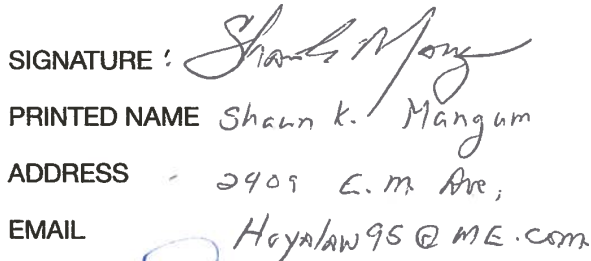 SIGNATURE : Shank Mang
PRINTED NAME Shaun K. Mangum
ADDRESS - 2909 E.M. Ave,
EMAIL Hoyalaw95@ME.com